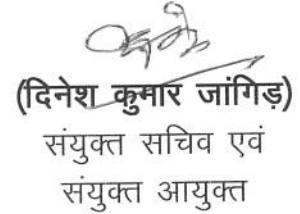 (दिनेश कुमार जांगिड़)
संयुक्त सचिव एवं
संयुक्त आयुक्त